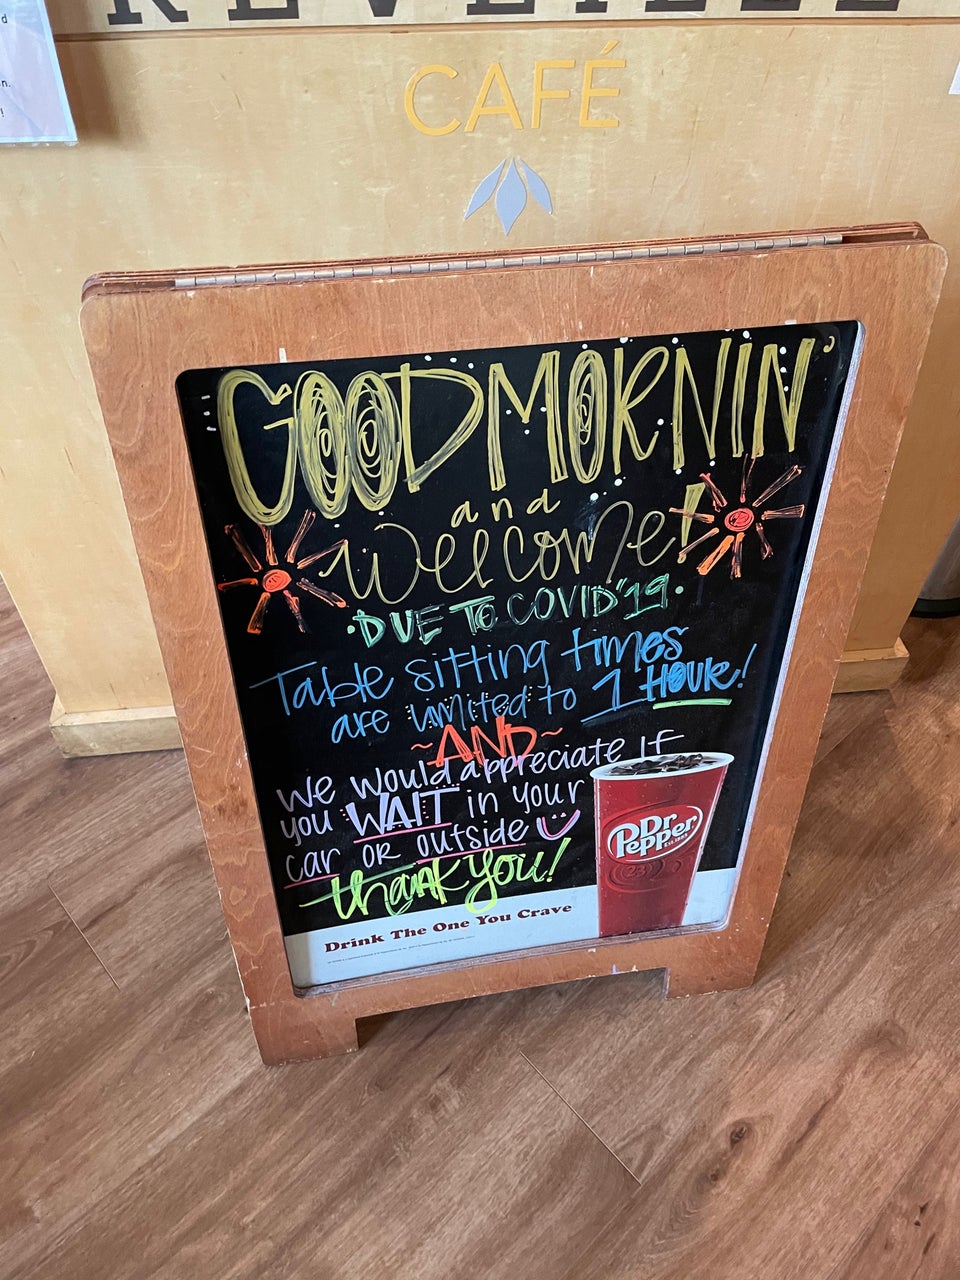 CAFÉ
GOOD MORNIN'
and
Welcome!
• DUE TO COVID'19 •
Table sitting times
are limited to 1 HOUR!
~AND~
We would appreciate IF
you WAIT in your
car or outside
thank you!
Dr Pepper
EST. 1885
23
Drink The One You Crave